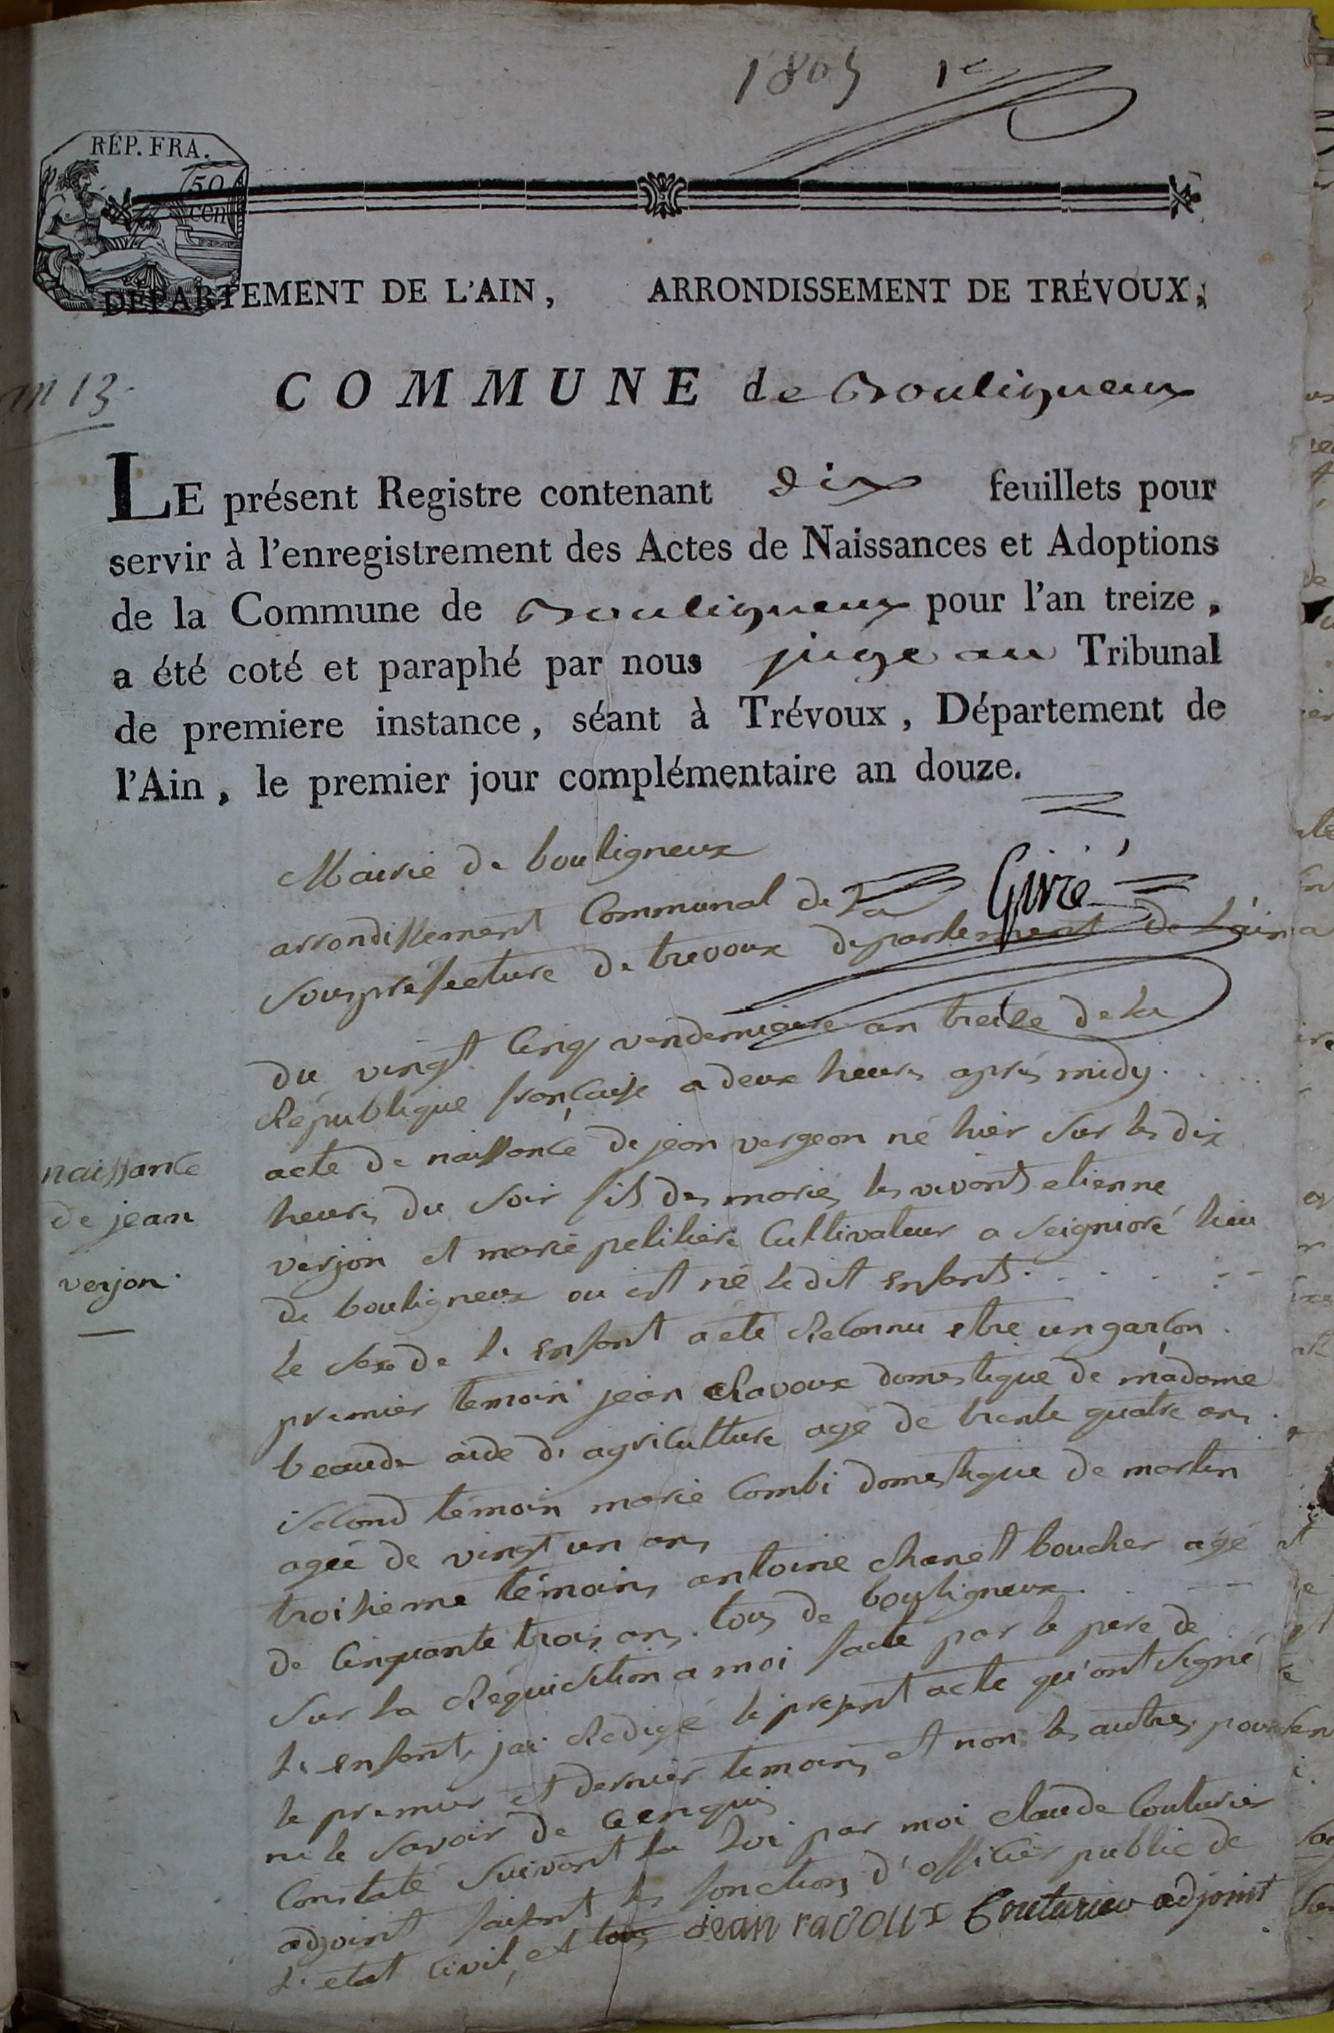 1805 1e
RÉP. FRA.
50
cen
DÉPARTEMENT DE L'AIN, ARRONDISSEMENT DE TRÉVOUX,
an 13.
COMMUNE de Bouligneux
LE présent Registre contenant dix feuillets pour
servir à l'enregistrement des Actes de Naissances et Adoptions
de la Commune de Bouligneux pour l'an treize,
a été coté et paraphé par nous juge au Tribunal
de premiere instance, séant à Trévoux, Département de
l'Ain, le premier jour complémentaire an douze.
Mairie de bouligneux
Givré
arrondissement Communal de La
Sousprefecture de trevoux departement de L'ain
du vingt Cinq vendemiaire an treize de La
République francaise a deux heures aprés midy.
naissance
de jean
verjon.
acte de naissance de jean vergeon né hier sur les dix
heures du soir fils des mariés les vivants etienne
verjon et marie peliliere Cultivateur a Seignioré hieu
de bouligneux ou est né ledit enfant.
le sexe de l'enfant a eté Reconnu etre un garcon.
premier temoin jean Ravoux domestique de madame
beaude aide d'agriculture agé de trente quatre ans.
second témoin marie Combi domestique de martin
ageé de vingt un ans
troisieme témoins antoine chanet boucher agé
de Cinquante trois ans. tous de bouligneux.
Sur la Requisition a moi faite par le pere de
L'enfant, jai Redigé le present acte qu'ont signé
le premier et dernier temoins et non les autres pour
ne le savoir de ce enquis
Constaté suivant la Loi par moi claude Couturier
adjoint faisant les fonctions d'officier public de
L'etat civil, et jean ravoux Couturier adjoint